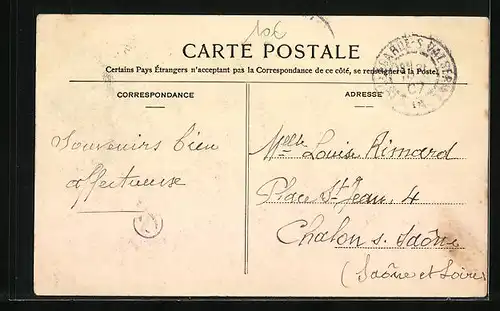 106
CARTE POSTALE
Certains Pays Étrangers n'acceptant pas la Correspondance de ce côté, se renseigner à la Poste.
CORRESPONDANCE
ADRESSE
Souvenirs bien
affectueuse
Melle Louise Rimard
Place St Jean, 4
Chalon s. Saône
(Saône et Loire)